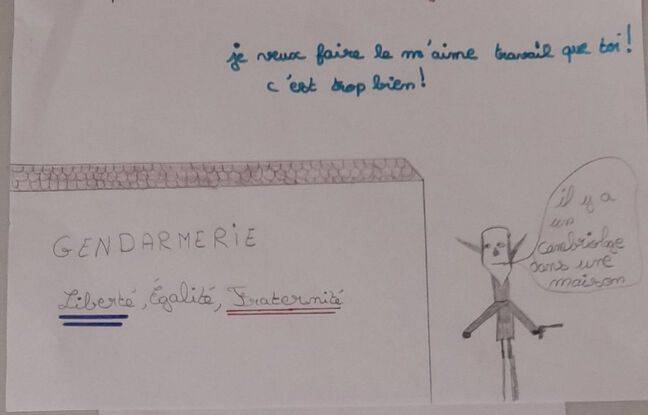 je veux faire le m'aime travail que toi!
c'est trop bien!
GENDARMERIE
Liberté, Égalité, Fraternité
il y a
un
cambriolage
dans une
maison